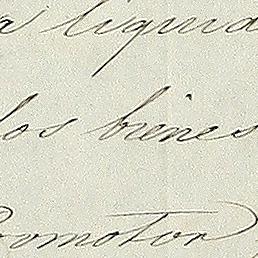 a liquida
los bienes
Promotor